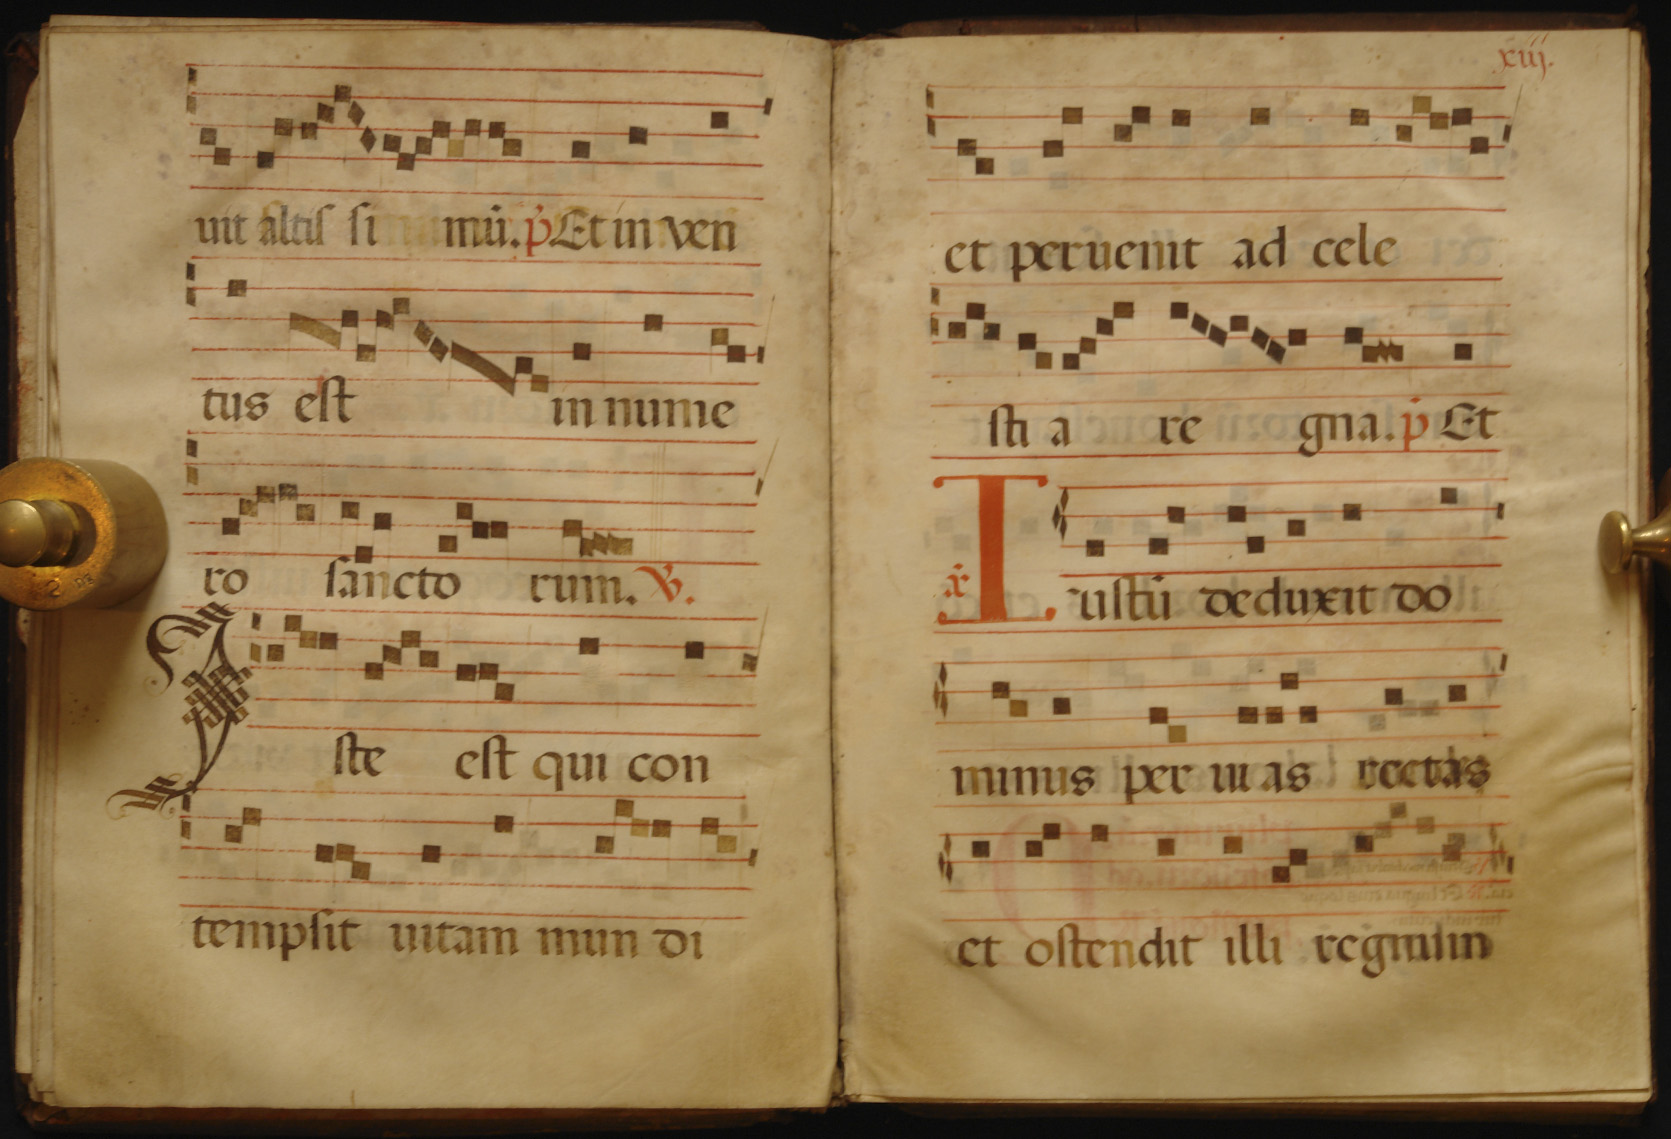 uit altis si mū. p̄ Et in ven
tus est in nume
ro sancto rum. V.
Iste est qui con
tempsit uitam mun di
xiij.
et peruenit ad cele
sti a re gna. p̄ Et
Iustū deduxit do
minus per uias rectas
et ostendit illi regnum